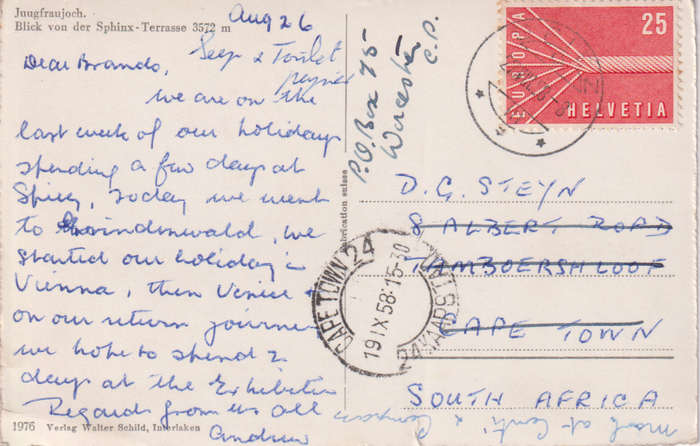 Jungfraujoch.
Blick von der Sphinx-Terrasse 3572 m
Aug 26
Dear Brando,
Seep & Toilet
papier
We are on the
last week of our holidays
spending a few days at
Spiez, today we went
to Grindenwald, we
started our holiday in
Vienna, then Venice
on our return journey
we hope to spend 2
days at the Exhibition
Regards from us all
Andrew
1976 Verlag Walter Schild, Interlaken
Fabrication suisse
P.O. Box 75
Worcester
C.P.
EUROPA
25
HELVETIA
D.G. STEYN
8 ALBERT ROAD
TAMBOERSKLOOF
CAPE TOWN
SOUTH AFRICA
CAPE TOWN 24
19 IX 58-15-30
KAAPSTAD 24